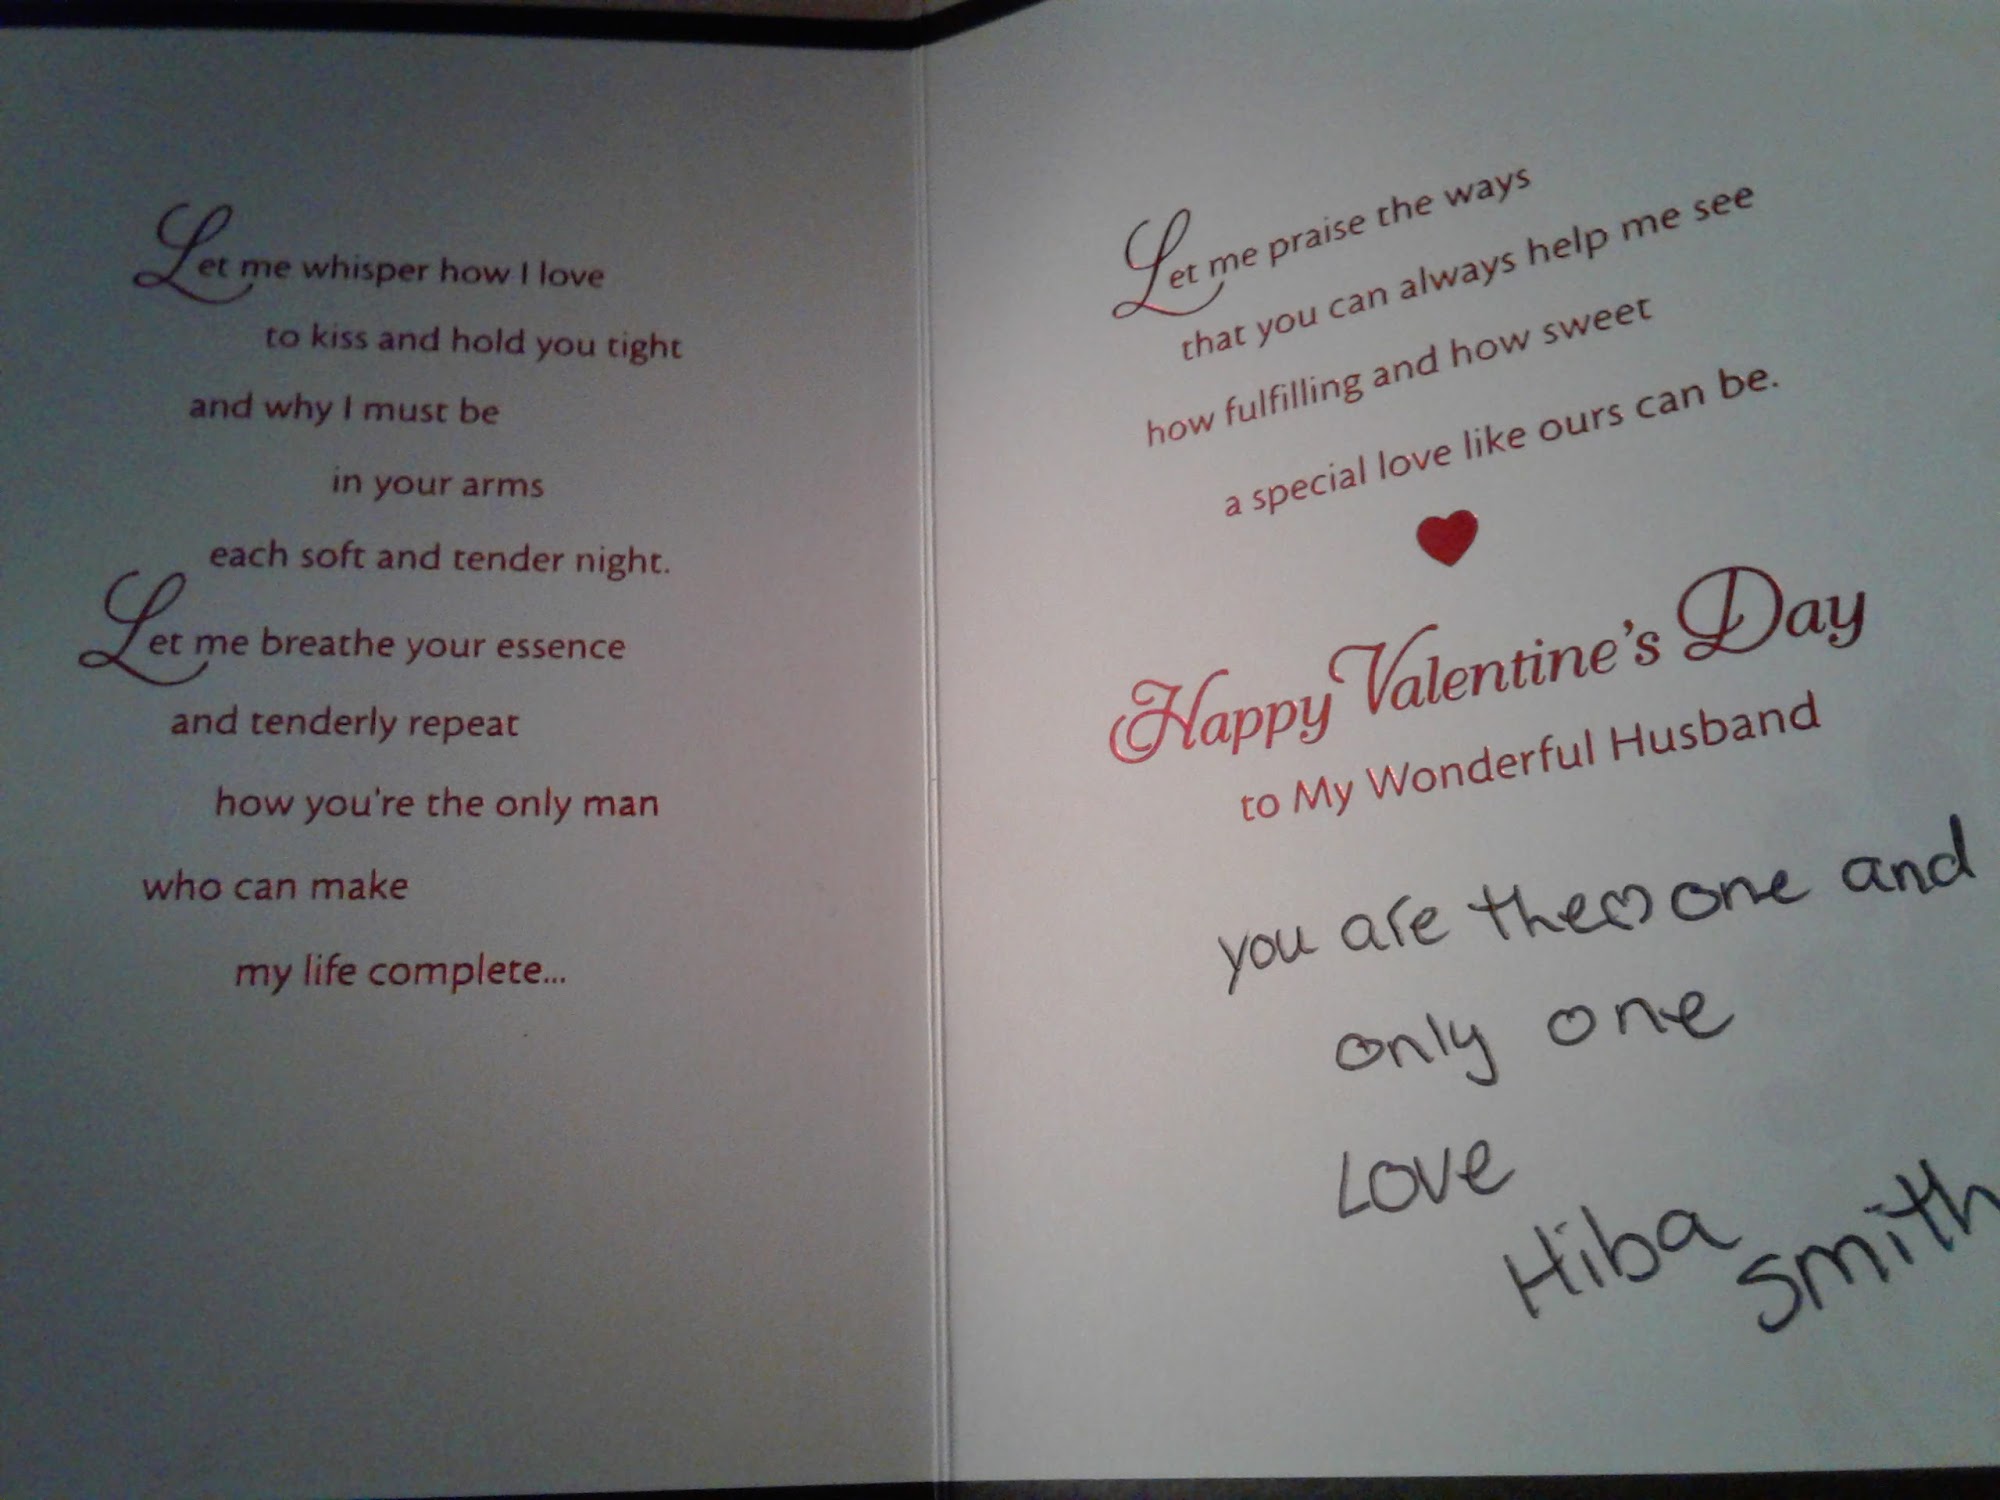 Let me whisper how I love
to kiss and hold you tight
and why I must be
in your arms
each soft and tender night.
Let me breathe your essence
and tenderly repeat
how you're the only man
who can make
my life complete...
Let me praise the ways
that you can always help me see
how fulfilling and how sweet
a special love like ours can be.
Happy Valentine's Day
to My Wonderful Husband
you are the one and
only one
Love
Hiba
Smith